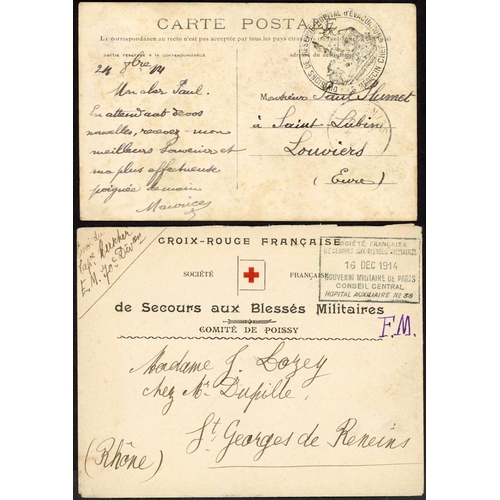 CARTE POSTALE
La correspondance au recto n'est pas acceptée par tous les pays étrangers
24 9bre 14
Mon cher Paul.
En attendant de vos
nouvelles, recevez mon
meilleurs Souvenirs et
ma plus affectueuse
poignée de main
Maurice
Monsieur Paul Plumet
à Saint Lubin
Louviers
(Eure)
E. M. 70e Divion
CROIX-ROUGE FRANÇAISE
SOCIÉTÉ FRANÇAISE
de Secours aux Blessés Militaires
COMITÉ DE POISSY
SOCIÉTÉ FRANÇAISE
DE SECOURS AUX BLESSÉS MILITAIRES
16 DEC 1914
GOUVERNt MILITAIRE DE PARIS
CONSEIL CENTRAL
HOPITAL AUXILIAIRE No 38
F.M.
Madame J. Lozey
chez Mr Dupille,
St Georges de Reneins
(Rhône)